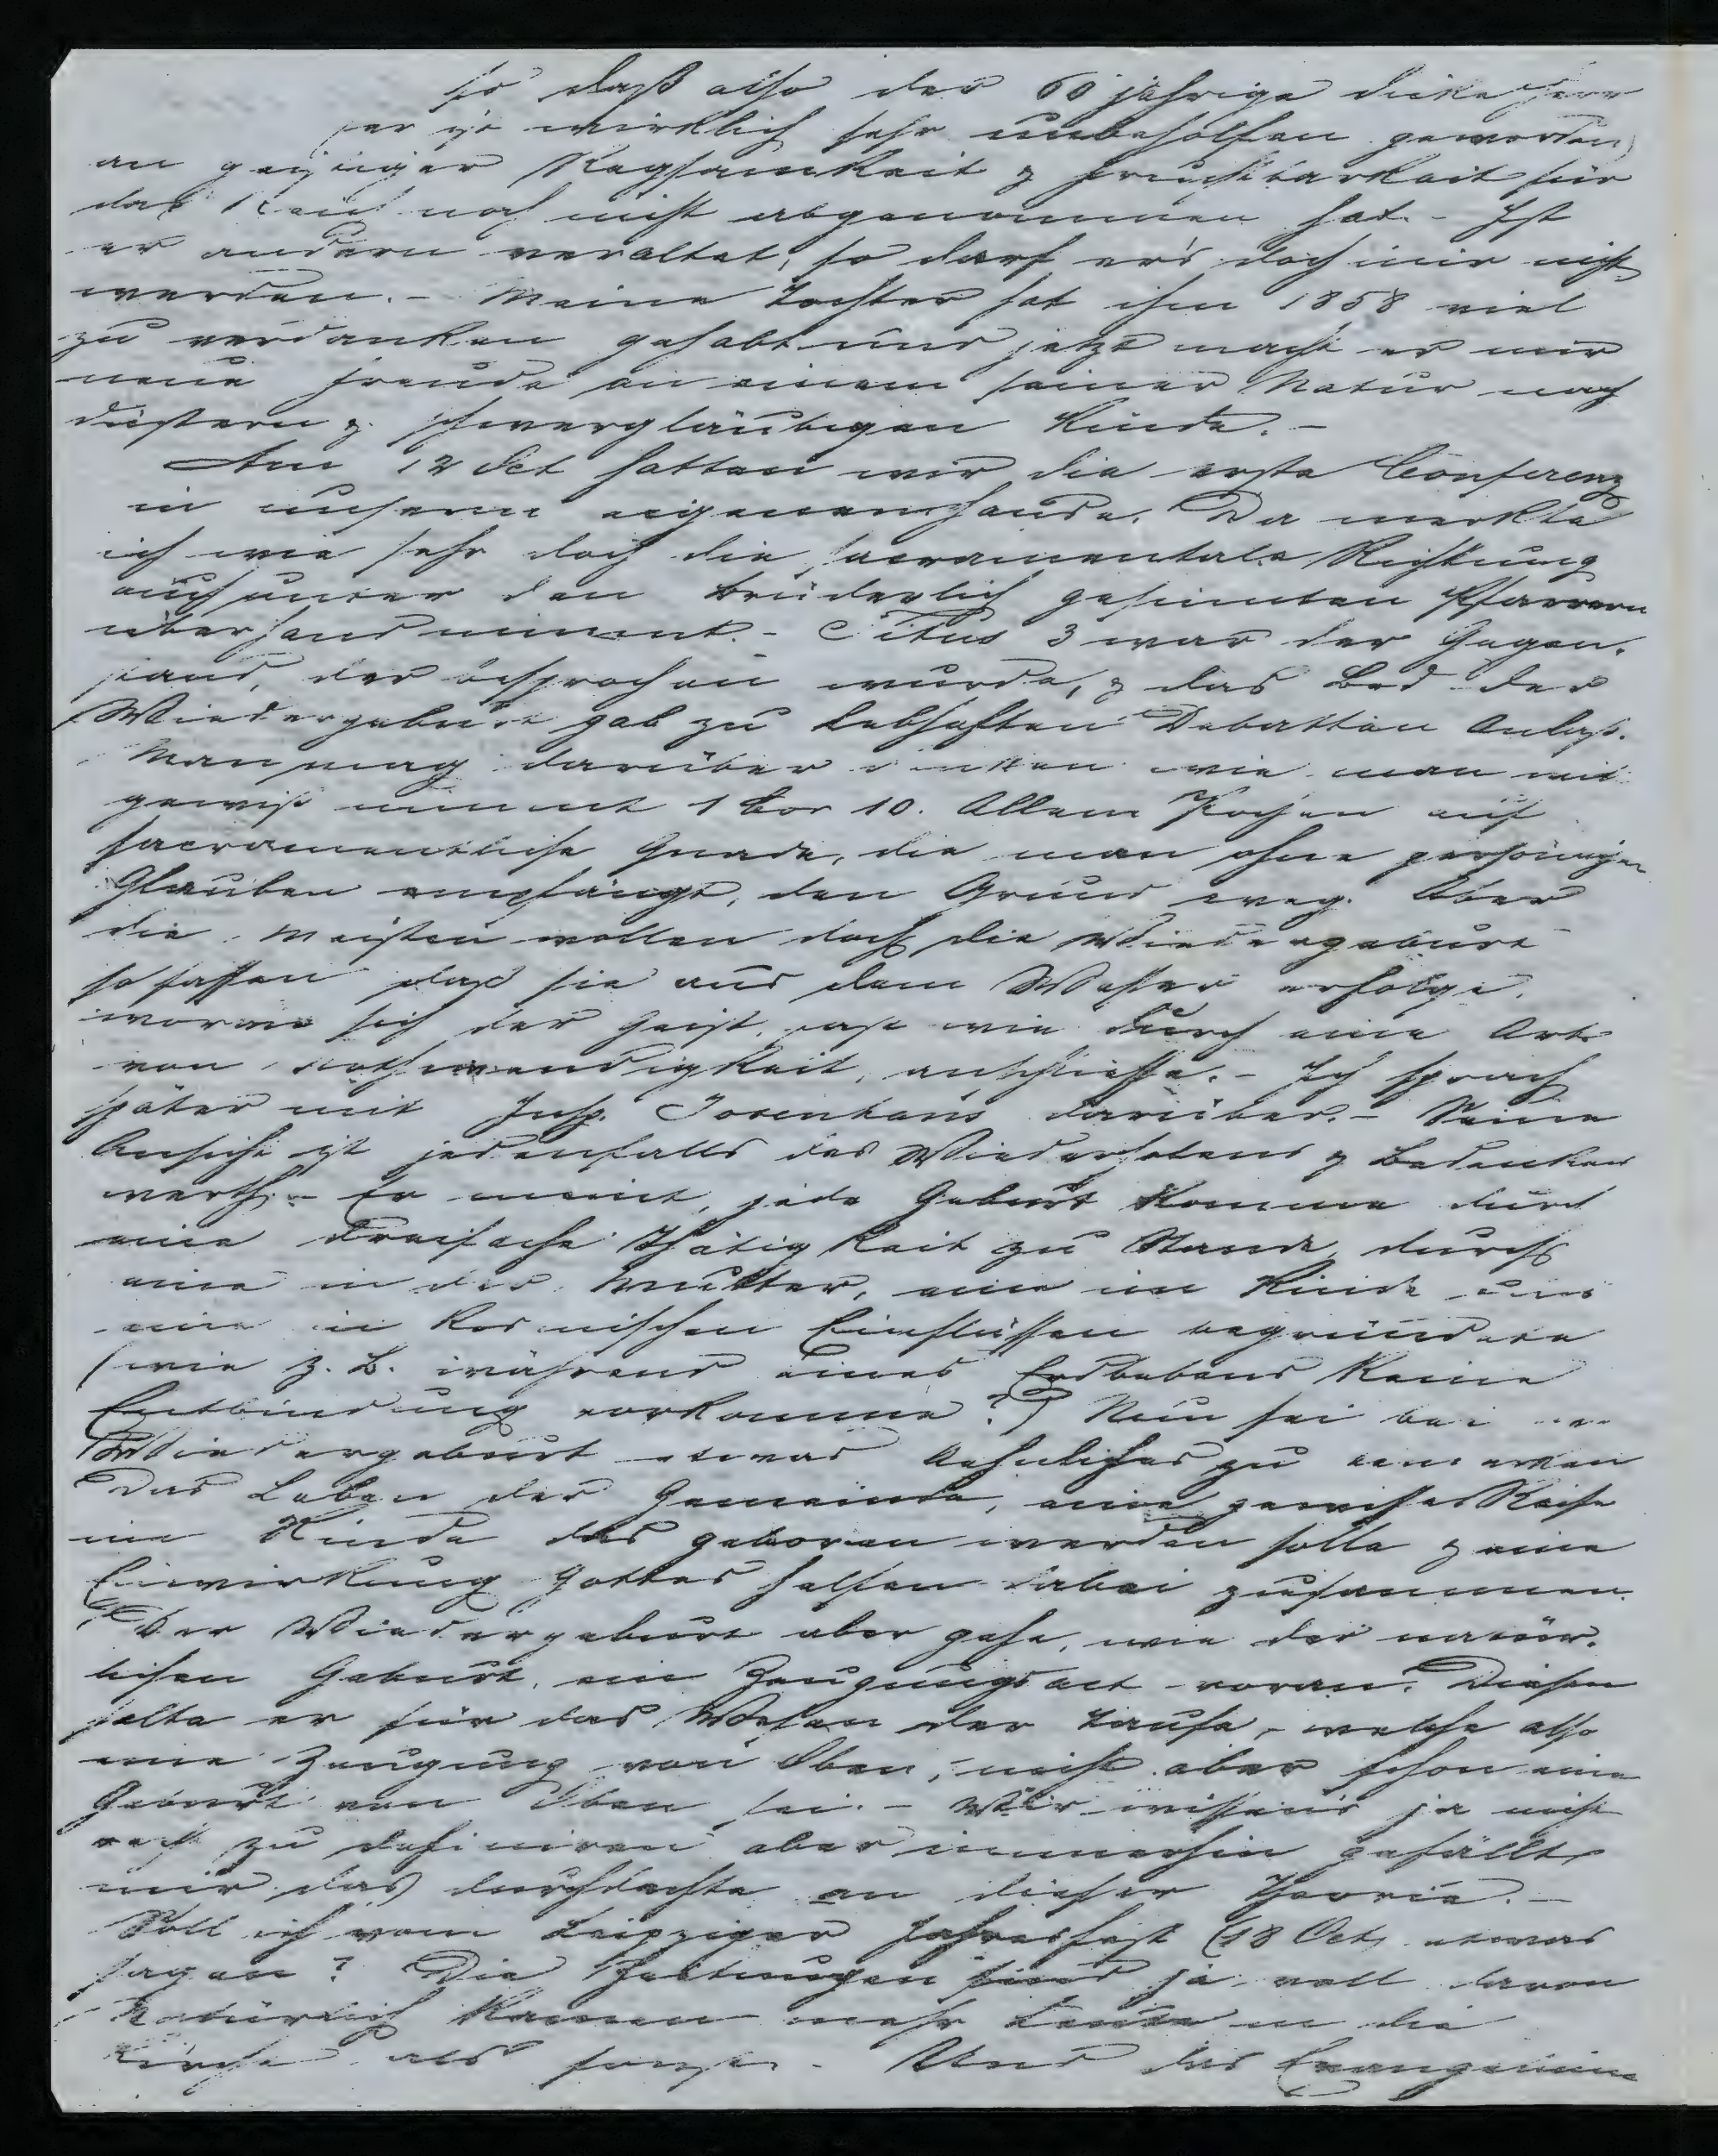 so daß also der 60 jährige dicke Herr
(er ist wirklich sehr unbeholfen geworden)
an geistiger Regsamkeit & Fruchtbarkeit für
das Reich noch nicht abgenommen hat. - Ist
er andern veraltet, so darf ers doch mir nicht
werden. - Meine Tochter hat ihm 1858 viel
zu verdanken gehabt und jetzt macht er mir
neue Freude an einem seiner Natur nach
düstern & schwergläubigen Kinde. -
Am 12 Oct hatten wir die erste Conferenz
in unserm eigenen Hause. Da merkte
ich wie sehr doch die sacramentale Richtung
auch unter den brüderlich gesinnten Pfarrern
überhand nimmt. - Titus 3 war der Gegen-
stand, der besprochen wurde, & das Bad der
Wiedergeburt gab zu lebhaften Debatten Anlaß.
Man mag darüber denken wie man will
gewiß nimmt 1 Cor 10. Allem Pochen auf
sacramentliche Gnade, die man ohne persönlichen
Glauben empfängt, den Grund weg. Aber
die Meisten wollen doch die Wiedergeburt
so fassen daß sie aus dem Wasser erfolge,
woran sich der Geist, fast wie durch eine Art
von Nothwendigkeit, anschliesse. - Ich sprach
später mit Insp. Josenhans darüber. - Seine
Ansicht ist jedenfalls des Wiederholens & Bedenkens
werth. - Er meint, jede Geburt komme durch
eine dreifache Thätigkeit zu Stande, durch
eine in der Mutter, eine im Kinde und
eine in kosmischen Einflüssen begründete
(wie z. B. während eines Erdbebens keine
Entbindung vorkomme?) Nun sei bei der
Wiedergeburt etwas Aehnliches zu bemerken
Das Leben der Gemeinde, eine gewisse Reife
im Kinde das geboren werden solle & eine
Einwirkung Gottes helfen dabei zusammen.
Der Wiedergeburt aber gehe, wie der natür-
lichen Geburt, ein Zeugungsact voran. Diesen
halte er für das Wesen der Taufe, welche also
eine Zeugung von Oben, nicht aber schon eine
Geburt von Oben sei. - Wir wissens ja nicht
recht zu definiren aber immerhin gefällt
mir das durchdachte an dieser Theorie. -
Soll ich vom Leipziger Jahresfest (18 Oct) etwas
sagen? Die Zeitungen sind ja voll davon
Natürlich kamen mehr Leute in die
Kirche als sonst. - Und das Evangelium